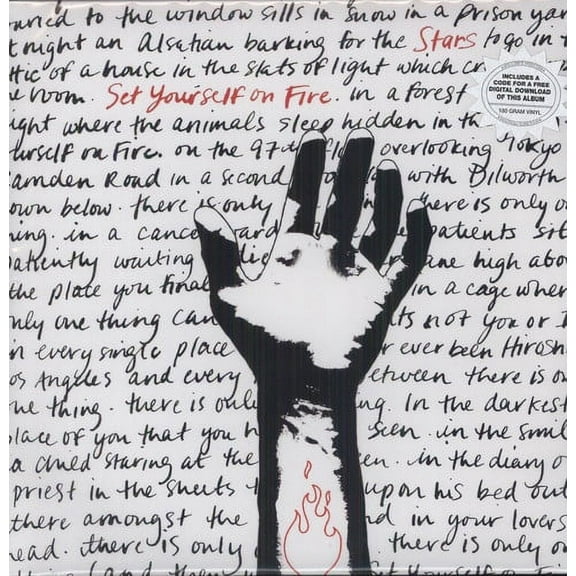 to the window sills in snow in a prison yar
t night an Alsatian barking for the Stars to go in t
ttic of a house in the slats of light which cr
e room. Set Yourself on Fire. in a forest
INCLUDES A
CODE FOR A FREE
DIGITAL DOWNLOAD
OF THIS ALBUM
180 GRAM VINYL
ght where the animals sleep hidden in th
urself on Fire. on the 97th fl overlooking Tokyo
amden Road in a second with Dilworth
own below. there is only here is only o
ing. in a cance ard patients sit
patiently waiting die ane high abo
the place you final in a cage wher
nly one thing can ts not you or I
n every single place r ever been Hirosh
os Angeles and every etween there is o
ne thing. there is only ng. In the darkest
lace of you that you h seen. in the smil
a child staring at the en. in the diary o
priest in the sheets t upon his bed out
there amongst the nd in your lovers
ead. there is only there is only